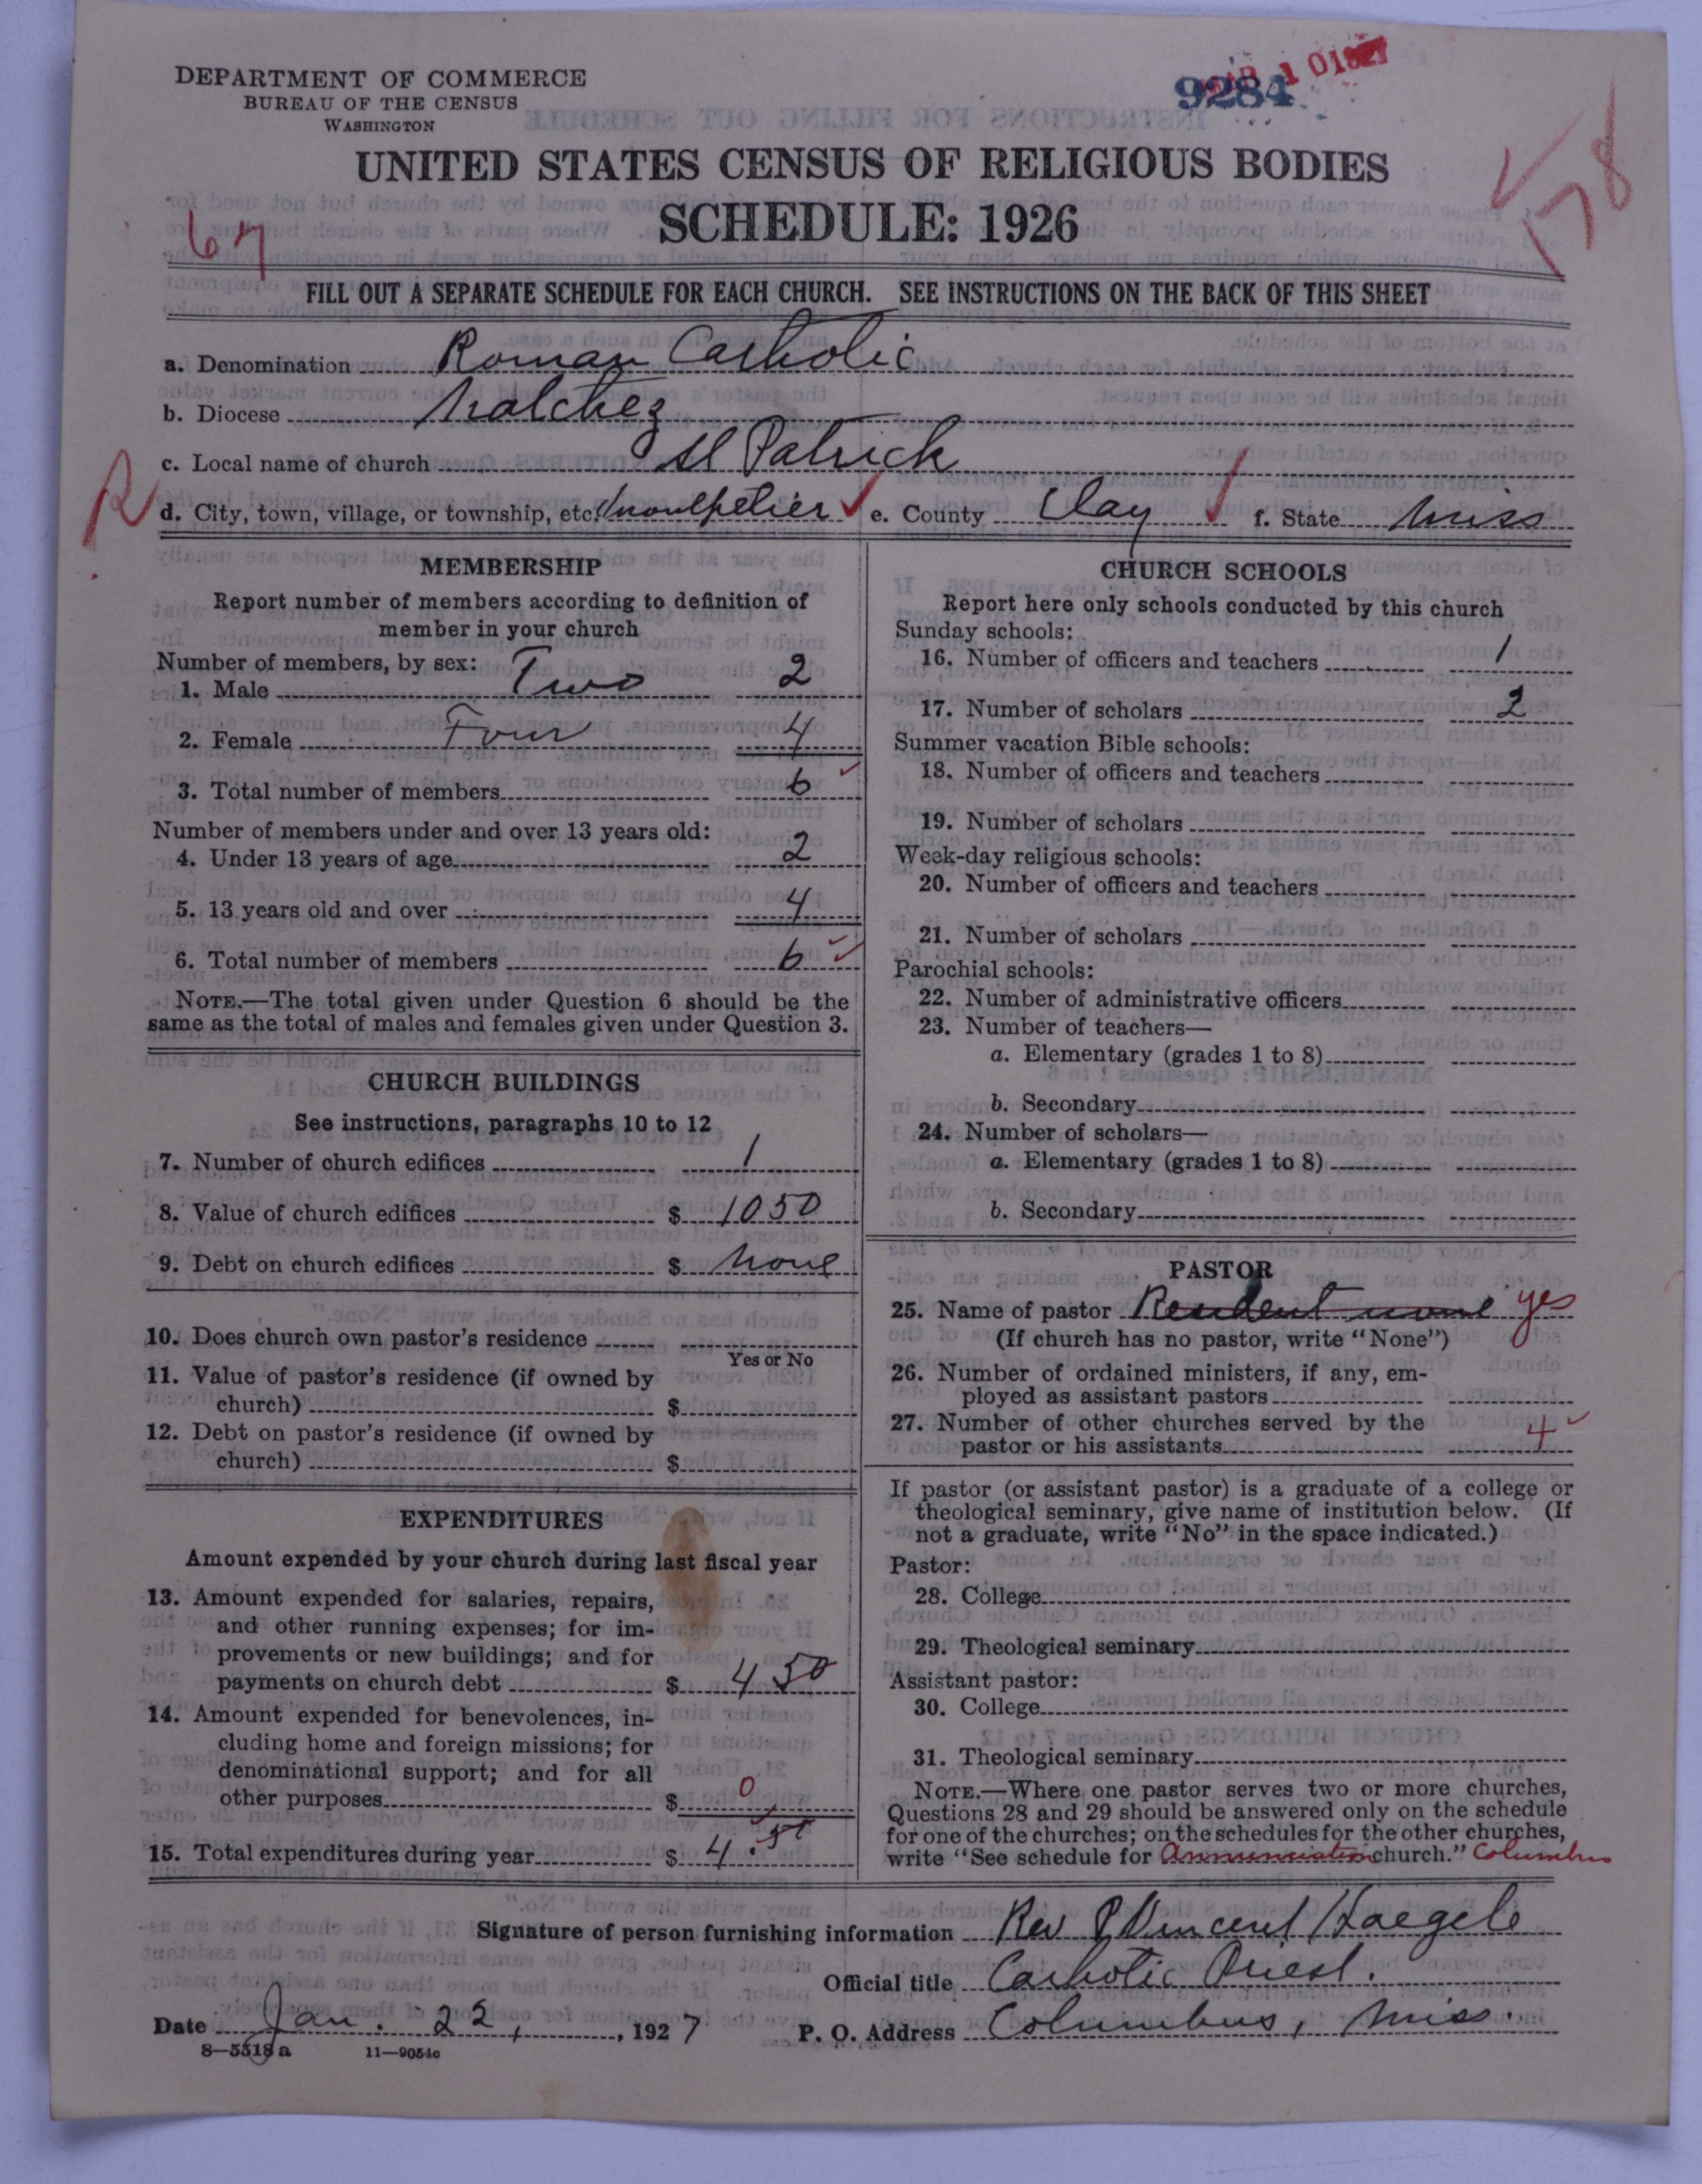 DEPARTMENT OF COMMERCE
BUREAU OF THE CENSUS
WASHINGTON
9284
MAR 10 1927
UNITED STATES CENSUS OF RELIGIOUS BODIES
SCHEDULE: 1926
67
178
FILL OUT A SEPARATE SCHEDULE FOR EACH CHURCH. SEE INSTRUCTIONS ON THE BACK OF THIS SHEET
a. Denomination Roman Catholic
b. Diocese Natchez
c. Local name of church St Patrick
R
d. City, town, village, or township, etc. Montpelier e. County Clay f. State Miss
MEMBERSHIP
Report number of members according to definition of
member in your church
Number of members, by sex:
1. Male Two 2
2. Female Four 4
3. Total number of members 6
Number of members under and over 13 years old:
4. Under 13 years of age 2
5. 13 years old and over 4
6. Total number of members 6
NOTE.—The total given under Question 6 should be the
same as the total of males and females given under Question 3.
CHURCH BUILDINGS
See instructions, paragraphs 10 to 12
7. Number of church edifices 1
8. Value of church edifices $ 1050
9. Debt on church edifices $ none
10. Does church own pastor's residence
Yes or No
11. Value of pastor's residence (if owned by
church) $
12. Debt on pastor's residence (if owned by
church) $
EXPENDITURES
Amount expended by your church during last fiscal year
13. Amount expended for salaries, repairs,
and other running expenses; for im-
provements or new buildings; and for
payments on church debt $ 4 50
14. Amount expended for benevolences, in-
cluding home and foreign missions; for
denominational support; and for all
other purposes $ 0
15. Total expenditures during year $ 4.50
CHURCH SCHOOLS
Report here only schools conducted by this church
Sunday schools:
16. Number of officers and teachers 1
17. Number of scholars 2
Summer vacation Bible schools:
18. Number of officers and teachers
19. Number of scholars
Week-day religious schools:
20. Number of officers and teachers
21. Number of scholars
Parochial schools:
22. Number of administrative officers
23. Number of teachers—
a. Elementary (grades 1 to 8)
b. Secondary
24. Number of scholars—
a. Elementary (grades 1 to 8)
b. Secondary
PASTOR
25. Name of pastor Resident none yes
(If church has no pastor, write "None")
26. Number of ordained ministers, if any, em-
ployed as assistant pastors
27. Number of other churches served by the
pastor or his assistants 4
If pastor (or assistant pastor) is a graduate of a college or
theological seminary, give name of institution below. (If
not a graduate, write "No" in the space indicated.)
Pastor:
28. College
29. Theological seminary
Assistant pastor:
30. College
31. Theological seminary
NOTE.—Where one pastor serves two or more churches,
Questions 28 and 29 should be answered only on the schedule
for one of the churches; on the schedules for the other churches,
write "See schedule for Annunciation church." Columbus
Signature of person furnishing information Rev P Vincent Haegele
Official title Catholic Priest.
Date Jan. 22, 1927 P. O. Address Columbus, Miss.
8—5518 a 11—9054c